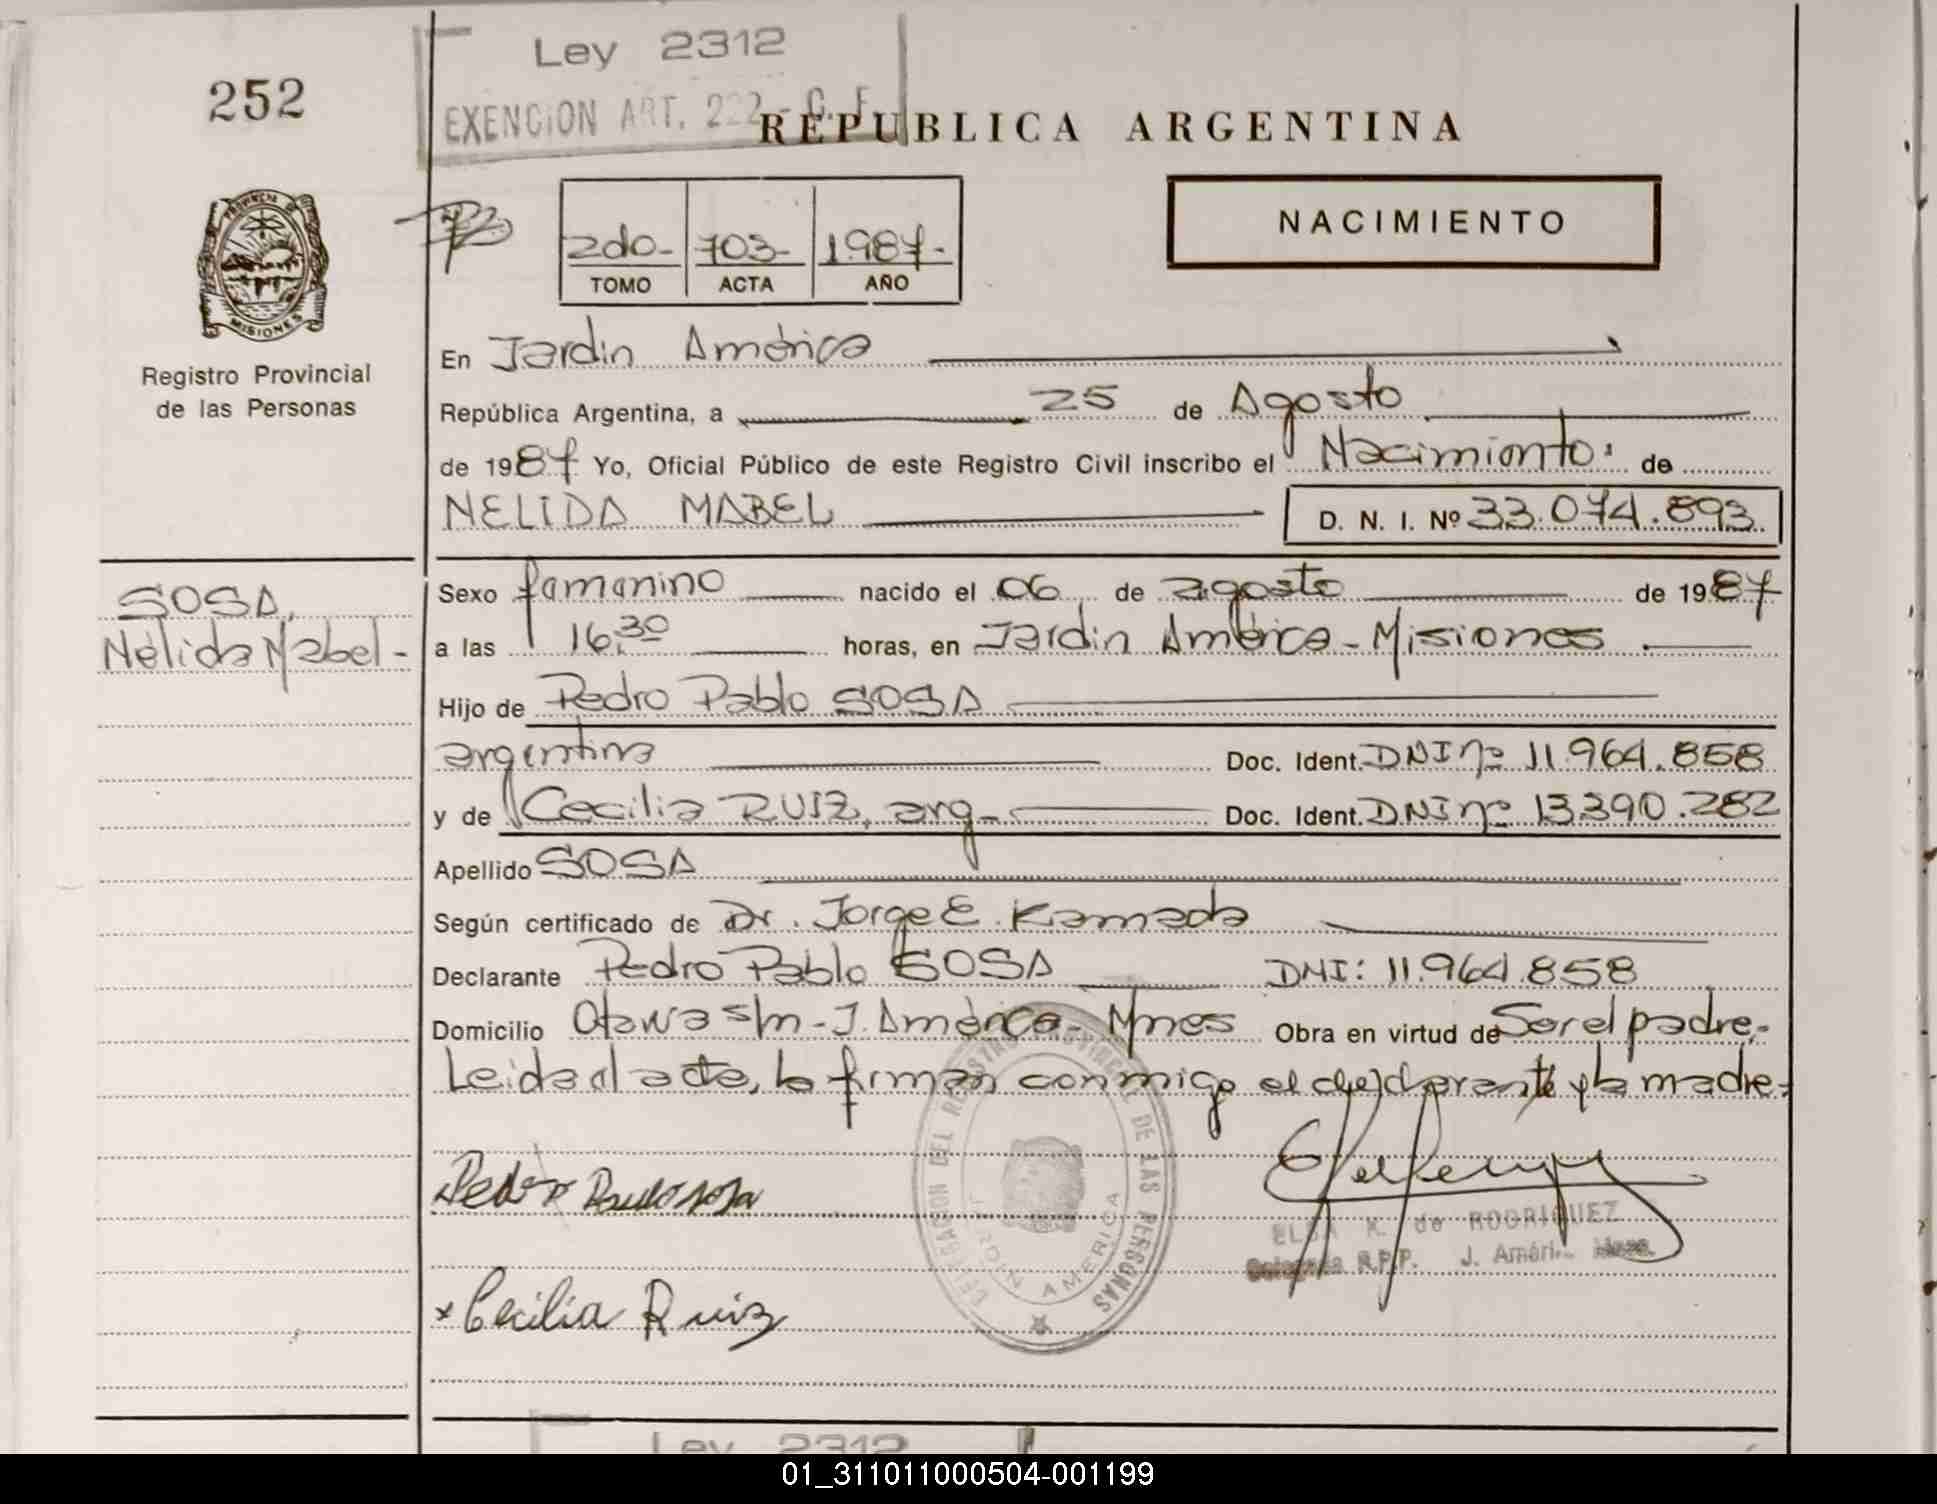 Ley 2312
252
EXENCION ART. 222 - C. F.
REPUBLICA ARGENTINA
NACIMIENTO
2do- 703- 1987-
TOMO ACTA AÑO
PROVINCIA DE
MISIONES
Registro Provincial
de las Personas
En Jardin América
República Argentina, a 25 de Agosto
de 1987 Yo, Oficial Público de este Registro Civil inscribo el Nacimiento: de
NELIDA MABEL D. N. I. Nº 33.074.893
SOSA,
Nélida Mabel-
Sexo femenino nacido el 06 de agosto de 1987
a las 16,30 horas, en Jardin América - Misiones
Hijo de Pedro Pablo SOSA
argentina Doc. Ident. DNI nº 11.964.858
y de Cecilia RUIZ, arg- Doc. Ident. DNI nº 13.390.282
Apellido SOSA
Según certificado de Dr. Jorge E. Kamada
Declarante Pedro Pablo SOSA DNI: 11.964.858
Domicilio Otawa s/n - J. América - Mnes Obra en virtud de Ser el padre.-
Leida el acta, la firman conmigo el declarante y la madre.-
DELEGACION DEL REGISTRO PROVINCIAL DE LAS PERSONAS
JARDIN AMERICA
Pedro Pablo sosa
ELSA K. de RODRIGUEZ
Delegada R.P.P. J. Améri. Mnes.
* Cecilia Ruiz
Ley 2312
01_311011000504-001199